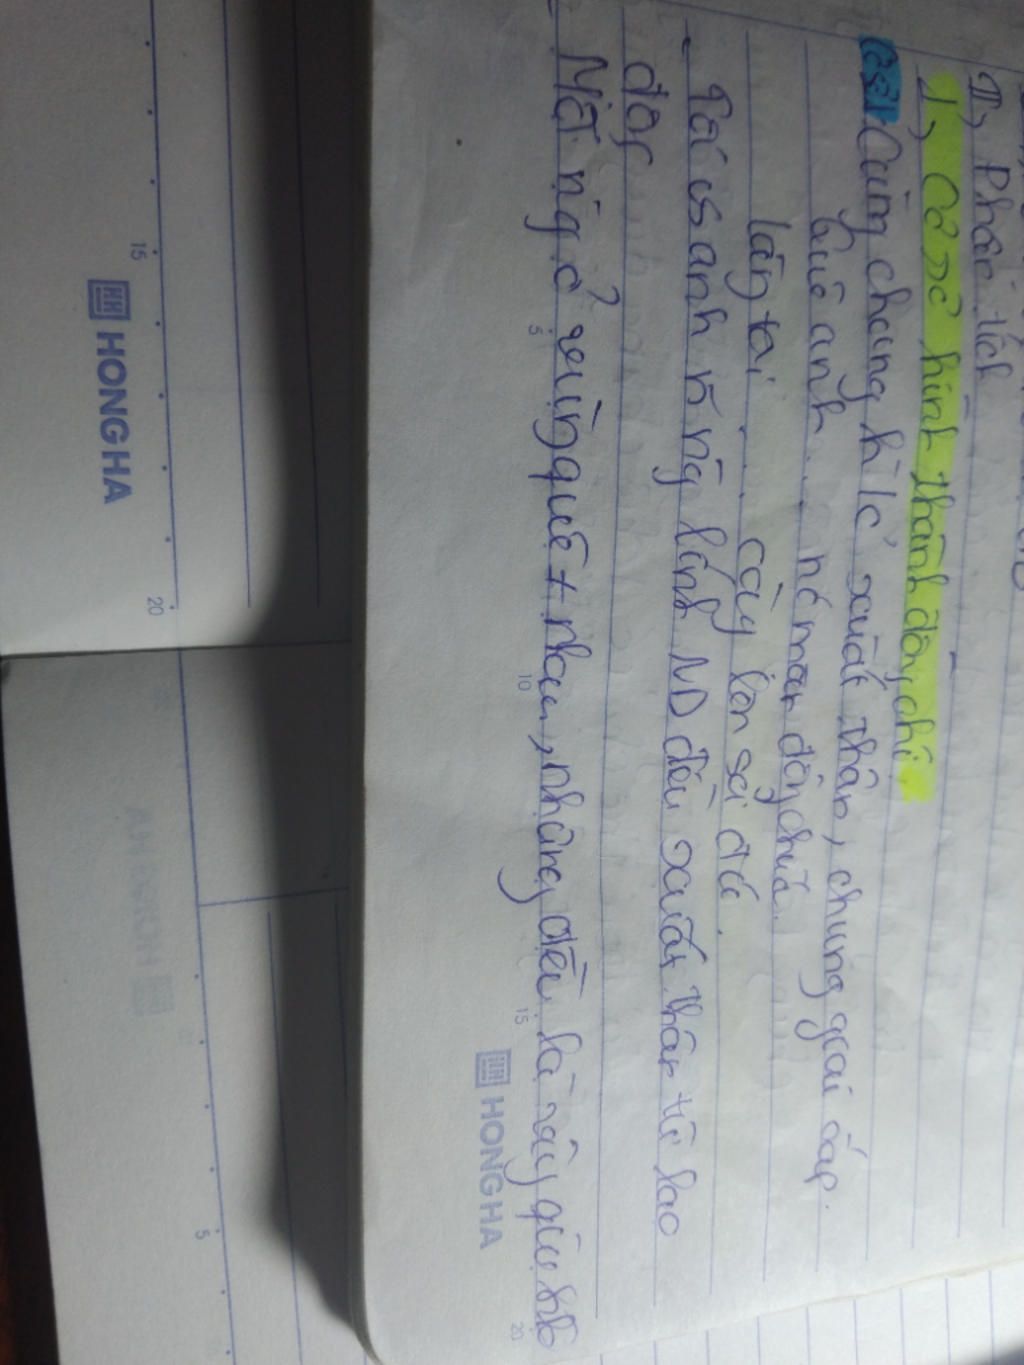 II, Phân tích
1, Cơ sở hình thành đồng chí
CS1 Cùng chung h/c xuất thân, chung giai cấp.
Quê anh ... nc mặn đồng chua
làng tôi ... cày lên sỏi đá
- Tôi và anh là ng lính ND đều xuất thân từ lao
động
- Mỗi ng ở vùng quê ≠ nhau, nhưng đều là vùng quê
HONG HA
HONG HA
5
10
15
20
15
20
5